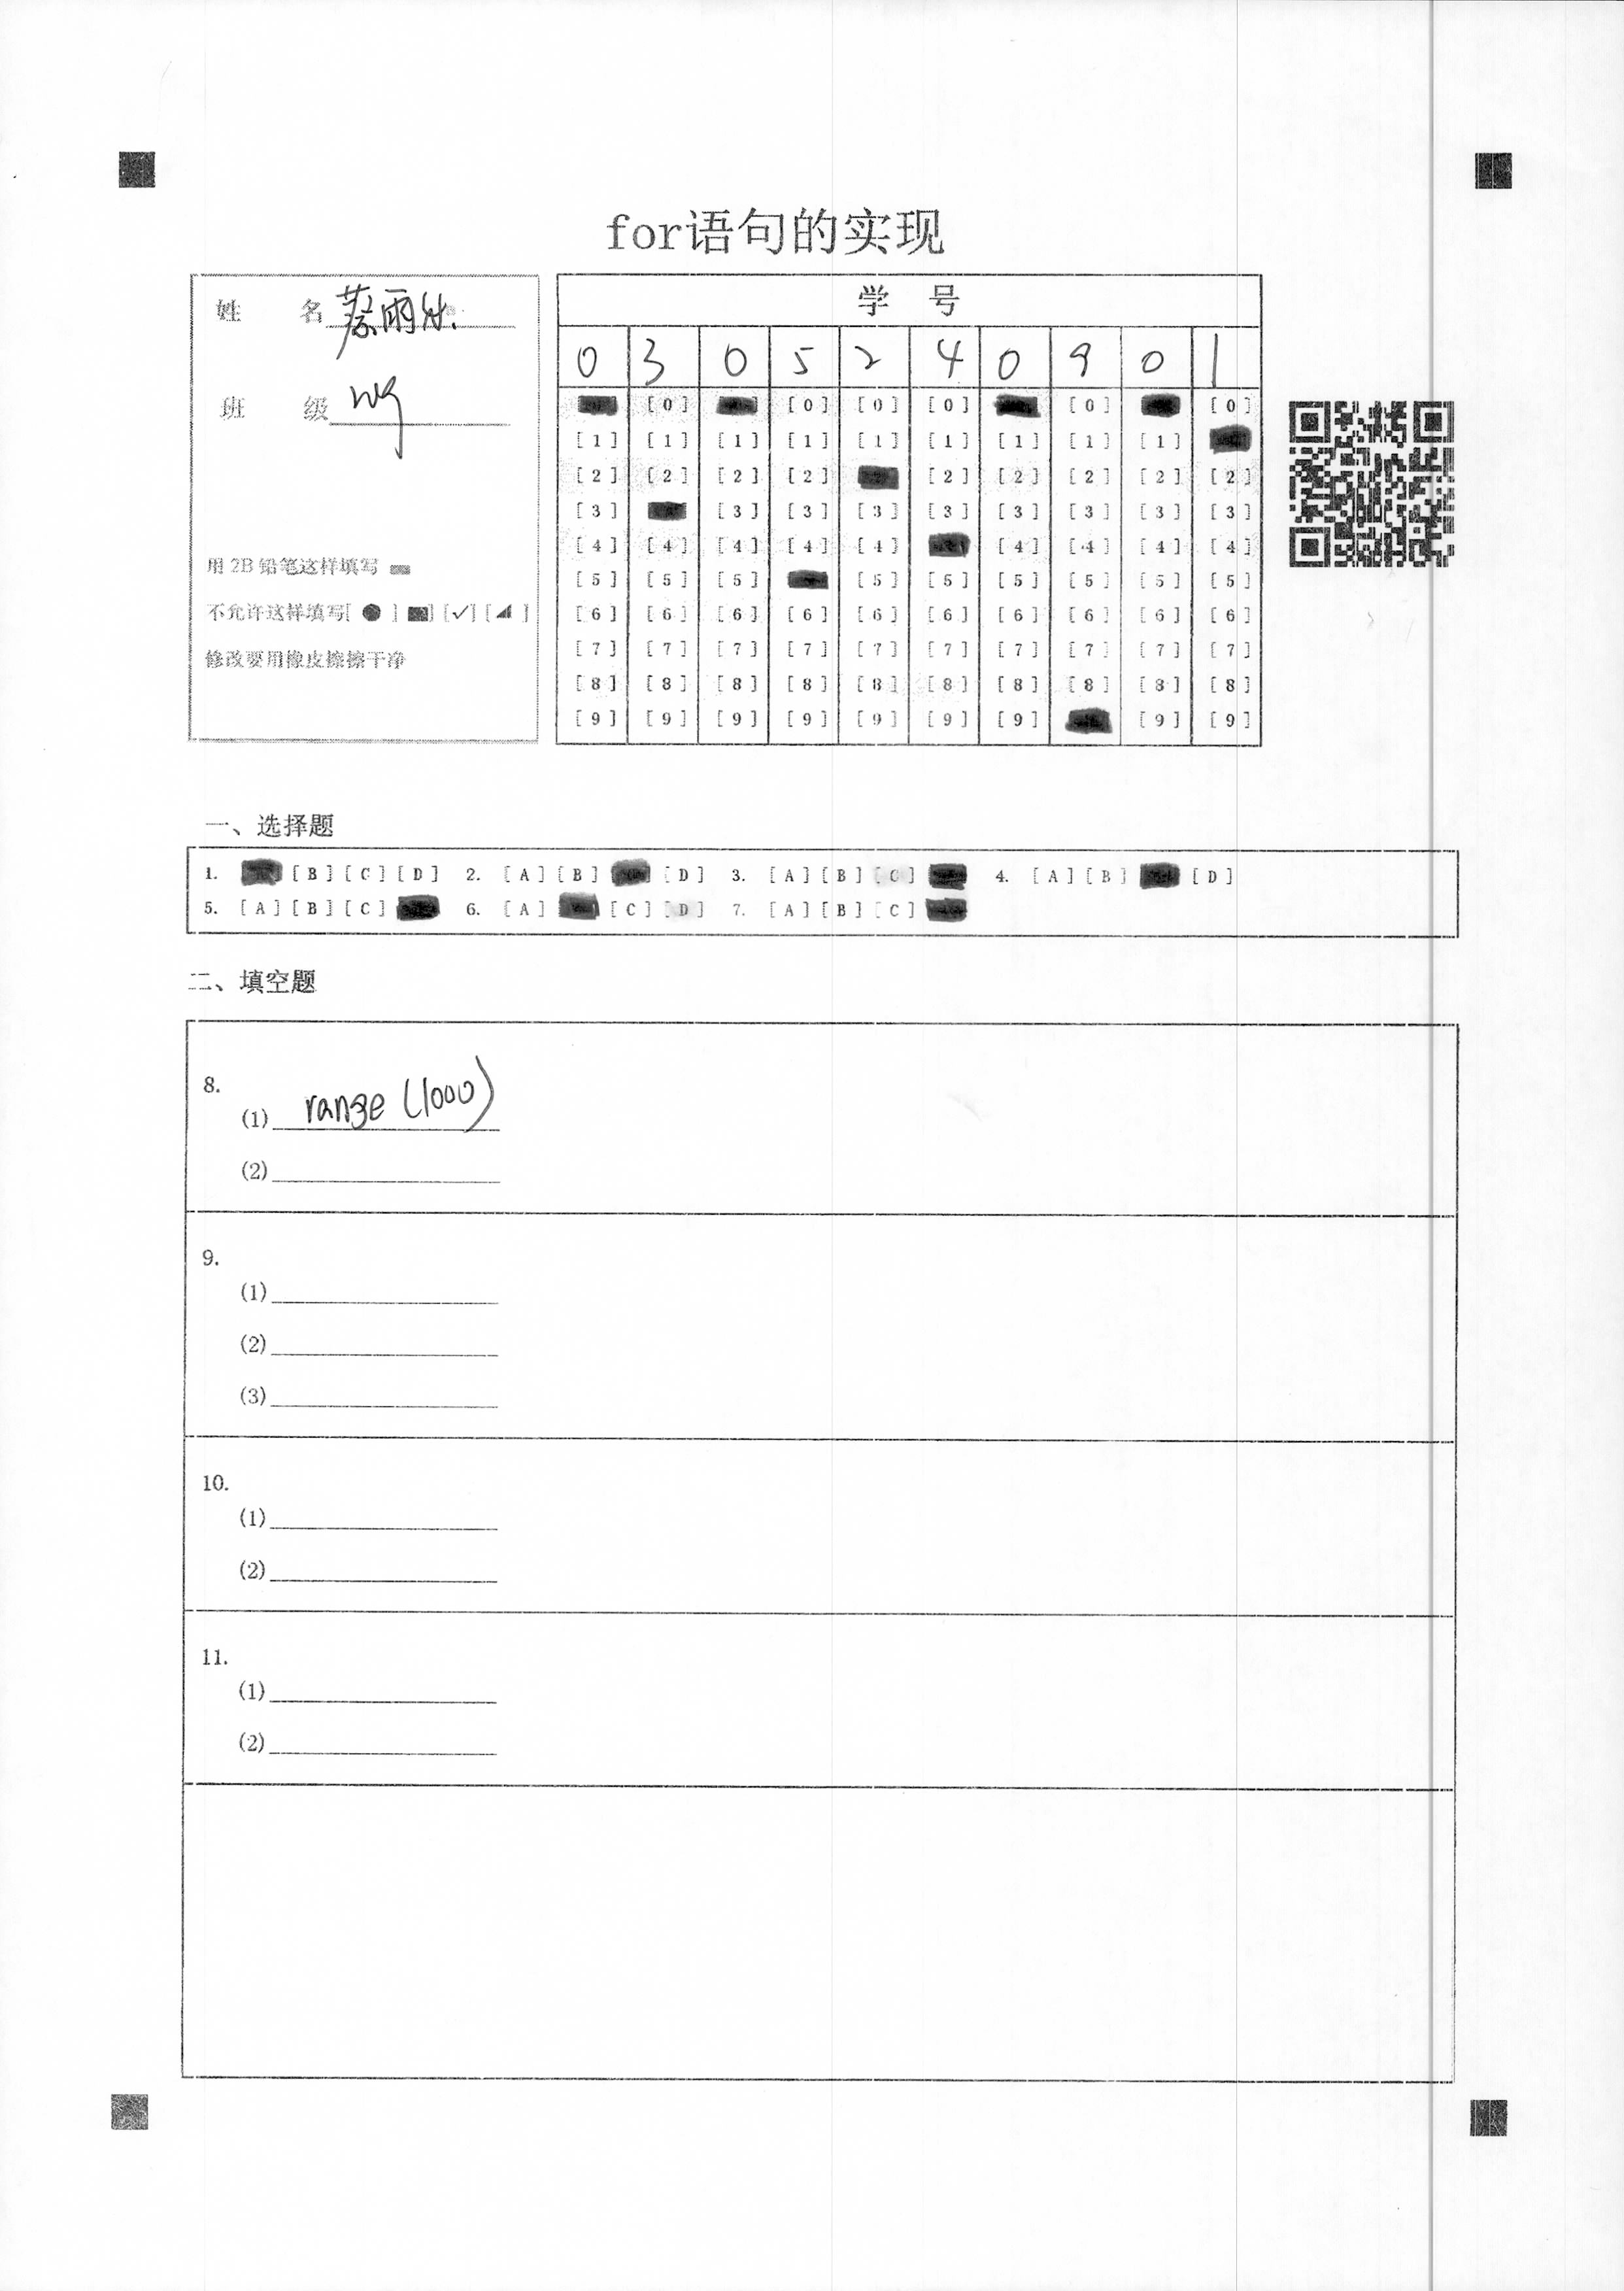 for语句的实现
姓 名 雨
班 级
用 2B 铅笔这样填写
不允许这样填写[ ● ] [■] [✓] [◢ ]
修改要用橡皮擦擦干净
学 号
0 3 0 5 2 4 0 9 0 1
[0] [0] [0] [0] [0] [0]
[1] [1] [1] [1] [1] [1] [1] [1] [1]
[2] [2] [2] [2] [2] [2] [2] [2] [2]
[3] [3] [3] [3] [3] [3] [3] [3] [3]
[4] [4] [4] [4] [4] [4] [4] [4] [4]
[5] [5] [5] [5] [5] [5] [5] [5] [5]
[6] [6] [6] [6] [6] [6] [6] [6] [6] [6]
[7] [7] [7] [7] [7] [7] [7] [7] [7] [7]
[8] [8] [8] [8] [8] [8] [8] [8] [8] [8]
[9] [9] [9] [9] [9] [9] [9] [9] [9]
一、选择题
1. [B] [C] [D] 2. [A] [B] [D] 3. [A] [B] [C] 4. [A] [B] [D]
5. [A] [B] [C] 6. [A] [C] [D] 7. [A] [B] [C]
二、填空题
8.
(1) range (1000)
(2)
9.
(1)
(2)
(3)
10.
(1)
(2)
11.
(1)
(2)